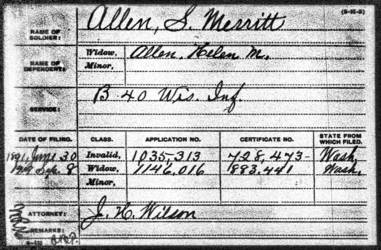 NAME OF SOLDIER: Allen, S. Merritt
NAME OF DEPENDENT: Widow, Allen, Helen M.
Minor,
SERVICE: B 40 Wis. Inf.
DATE OF FILING. CLASS. APPLICATION NO. CERTIFICATE NO. STATE FROM WHICH FILED.
1891 June 30 Invalid, 1035,313 428,473 Wash.
Sep. 8 Widow, 1146,016 883,441 Wash.
Minor,
ATTORNEY: J. H. Wilson
REMARKS: